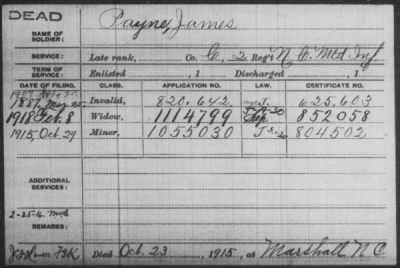 DEAD
NAME OF SOLDIER: Payne, James
SERVICE: Late rank, Co. C, 2 Reg't N C Mtd Inf.
TERM OF SERVICE: Enlisted , 1 Discharged , 1
DATE OF FILING. CLASS. APPLICATION NO. LAW. CERTIFICATE NO.
1887 May 25 Invalid, 820.642 625,603
1918 Feb. 8 Widow, 1114799 852058
1915, Oct. 29 Minor, 1055030 804502
ADDITIONAL SERVICES:
2-25-16
REMARKS:
Died Oct. 23 , 1915, at Marshall N C